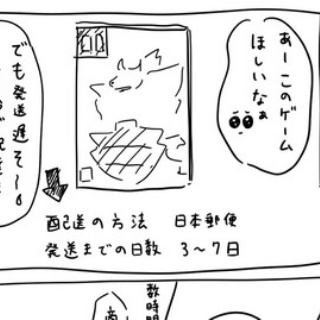 あーこのゲーム
ほしいなぁ
でも発送遅そ〜。
配送の方法 日本郵便
発送までの日数 3〜7日
数時間